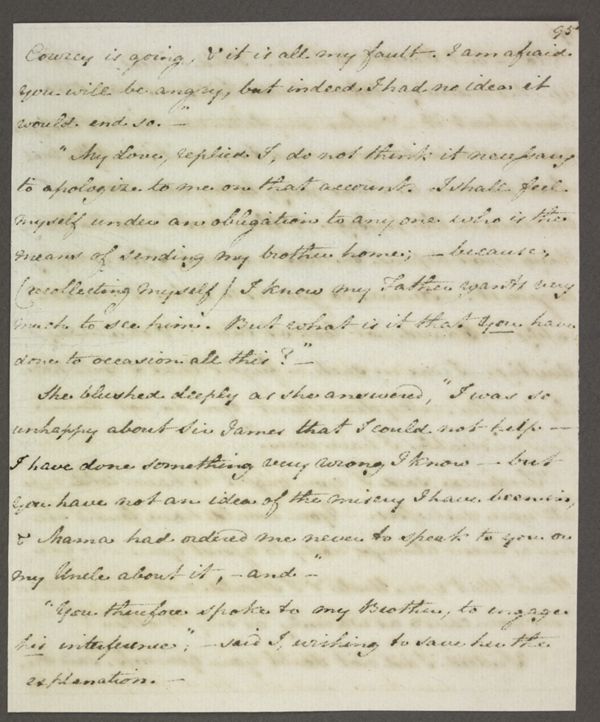 95
Courcy is going, & it is all my fault. I am afraid
you will be angry, but indeed I had no idea it
would end so. —"
"My Love, replied I, do not think it necessary
to apologize to me on that account. I shall feel
myself under an obligation to any one who is the
means of sending my brother home; — because,
(recollecting myself) I know my Father wants very
much to see him. But what is it that you have
done to occasion all this?" —
She blushed deeply as she answered, "I was so
unhappy about Sir James that I could not help —
I have done something very wrong I know — but
you have not an idea of the misery I have been in,
& Mama had ordered me never to speak to you or
my Uncle about it, — and —"
"You therefore spoke to my Brother, to engage
his interference"; — said I, wishing to save her the
explanation. —